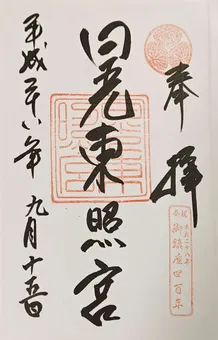 奉拝
奉祝 御鎮座四百年
日光東照宮
平成二十八年 九月十五日